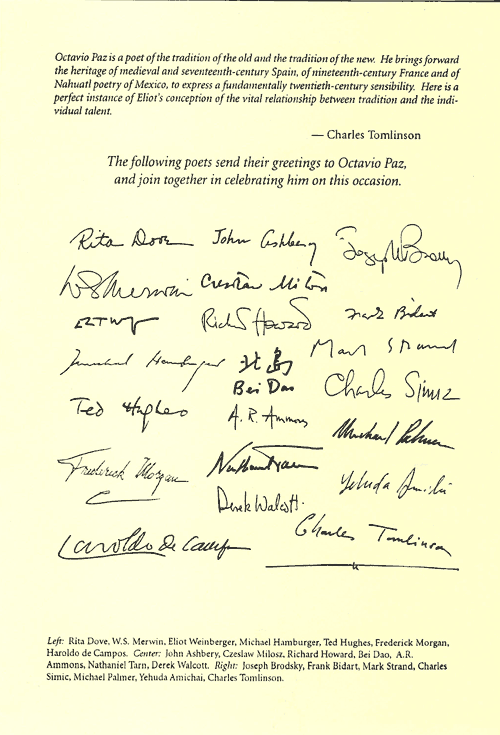 Octavio Paz is a poet of the tradition of the old and the tradition of the new. He brings forward
the heritage of medieval and seventeenth-century Spain, of nineteenth-century France and of
Nahuatl poetry of Mexico, to express a fundamentally twentieth-century sensibility. Here is a
perfect instance of Eliot's conception of the vital relationship between tradition and the indi-
vidual talent.
— Charles Tomlinson
The following poets send their greetings to Octavio Paz,
and join together in celebrating him on this occasion.
Rita Dove
John Ashbery
Joseph Brodsky
W.S. Merwin
Czeslaw Milosz
Richard Howard
Frank Bidart
Michael Hamburger
北島
Bei Dao
Mark Strand
Charles Simic
Ted Hughes
A. R. Ammons
Michael Palmer
Frederick Morgan
Nathaniel Tarn
Yehuda Amichai
Derek Walcott
Haroldo de Campos
Charles Tomlinson
Left: Rita Dove, W.S. Merwin, Eliot Weinberger, Michael Hamburger, Ted Hughes, Frederick Morgan,
Haroldo de Campos. Center: John Ashbery, Czeslaw Milosz, Richard Howard, Bei Dao, A.R.
Ammons, Nathaniel Tarn, Derek Walcott. Right: Joseph Brodsky, Frank Bidart, Mark Strand, Charles
Simic, Michael Palmer, Yehuda Amichai, Charles Tomlinson.